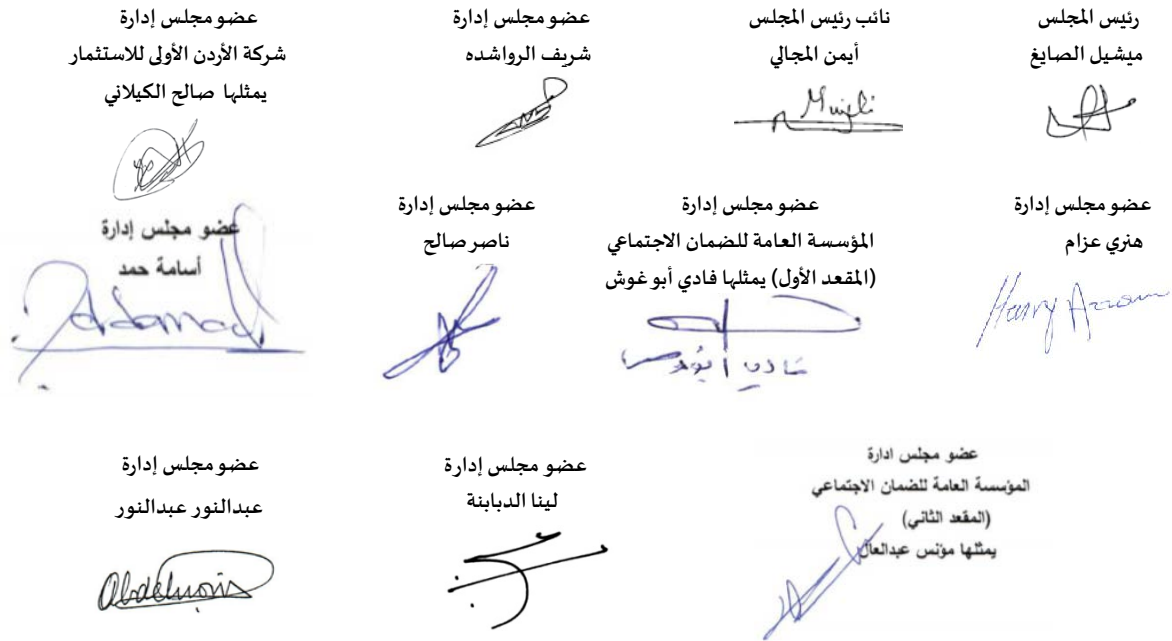 رئيس المجلس
ميشيل الصايغ
نائب رئيس المجلس
أيمن المجالي
Mujali
عضو مجلس إدارة
شريف الرواشده
عضو مجلس إدارة
شركة الأردن الأولى للاستثمار
يمثلها صالح الكيلاني
عضو مجلس إدارة
هنري عزام
Harry Azzam
عضو مجلس إدارة
المؤسسة العامة للضمان الاجتماعي
(المقعد الأول) يمثلها فادي أبو غوش
عضو مجلس إدارة
ناصر صالح
عضو مجلس إدارة
أسامة حمد
عضو مجلس ادارة
المؤسسة العامة للضمان الاجتماعي
(المقعد الثاني)
يمثلها مؤنس عبدالعال
عضو مجلس إدارة
لينا الدبابنة
عضو مجلس إدارة
عبدالنور عبدالنور